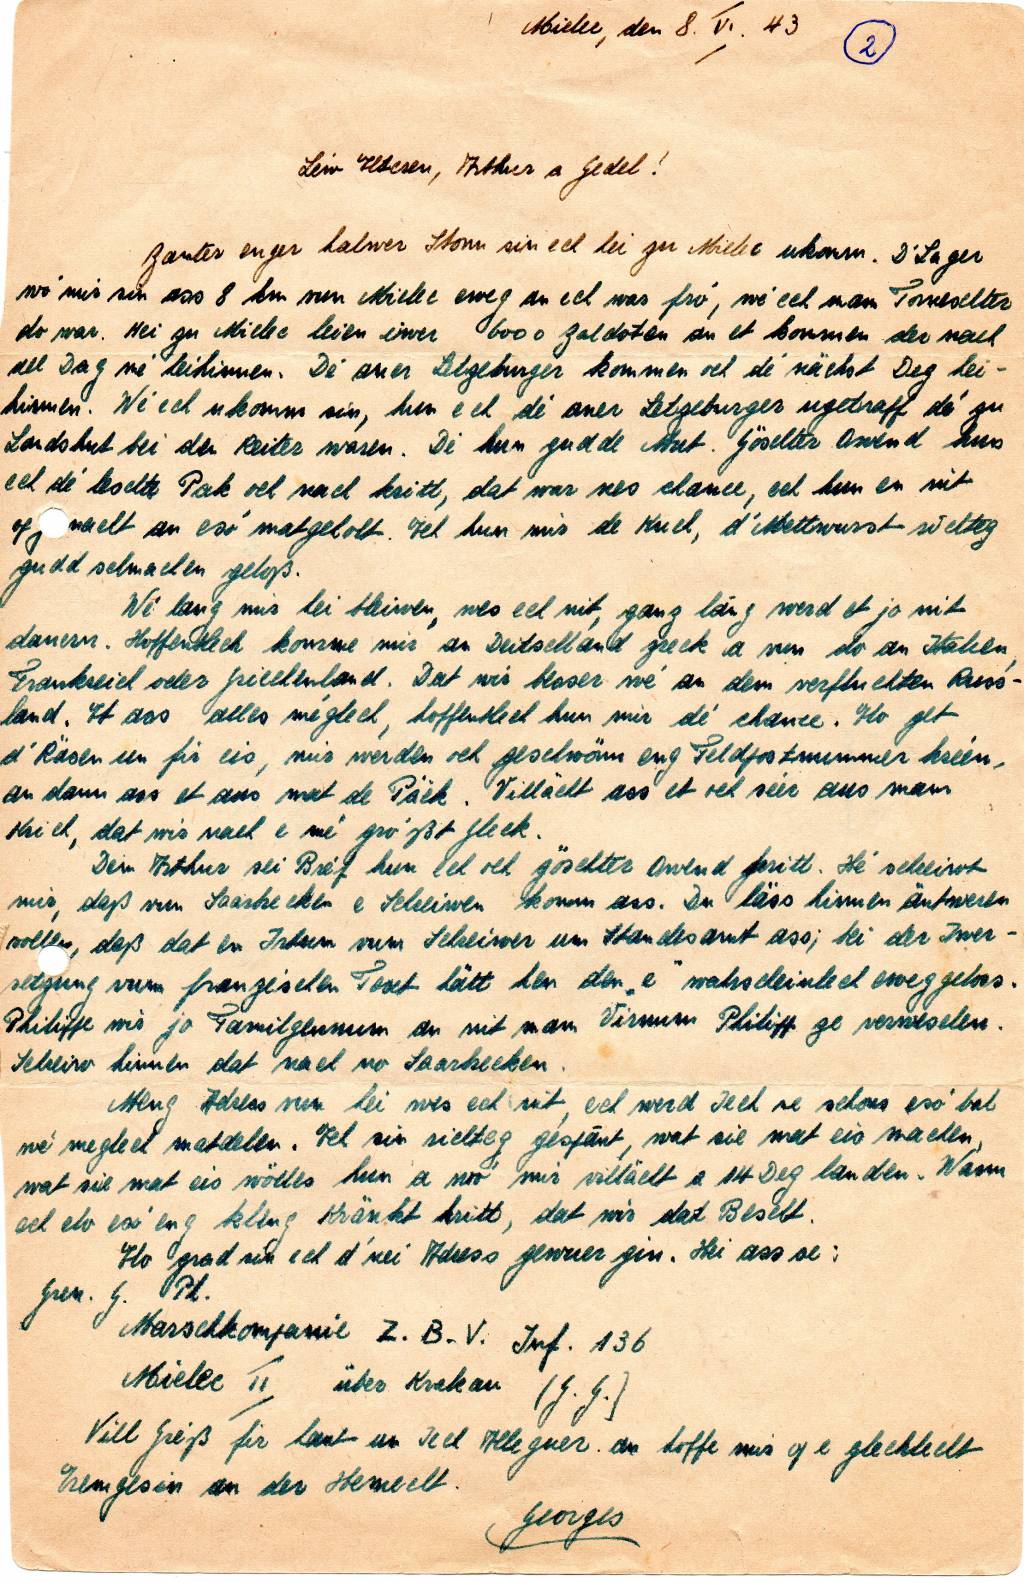 Mielec, den 8. VI. 43
2
Léiw Elteren, Arthur a Gedel!
Zanter enger halwer Stonn sin ech hei zu Mielec ukomm. D'Lager
wó mir sin ass 8 km vun Mielec eweg an ech war fró, wé ech mam Torneschter
do war. Hei zu Mielec leien iwer 6000 Zaldoten an et kommen der nach
all Dag mé heihinnen. Dé aner Letzeburger kommen och dé nächst Deg hei-
hinnen. Wé ech ukomm sin, hun ech dé aner Letzeburger ugetraff dé zu
Landshut bei den Reiter waren. Dé hun gudde Mut. Göschter Owend hun
ech dé leschte Pak och nach kritt, dat war nes chance, ech hun en nit
opgemacht an esó matgeholt. Ech hun mir de Kuch, d'Mettwurscht richteg
gudd schmachen geloß.
Wé lang mir hei bleiwen, wes ech nit, ganz läng werd et jo nit
daueren. Hoffentlech komme mir an Deitschland zreck a vun do an Italien,
Frankreich oder Griechenland. Dat wir besser wé an dem verfluchten Russ-
land. Et ass alles méglech, hoffentlech hun mir dé chance. Elo get
d'Räsen un fir eis, mir werden och geschwönn eng Feldpostnummer kréen,
an dann ass et aus mat de Päck. Villächt ass et och séer aus mam
Krich, dat wir nach e mé gró ßt Gleck.
Dem Arthur sei Bréf hun ech och göschter Owend kritt. Hé schreiwt
mir, daß vun Saarbrecken e Schreiwen komm ass. Du läss hinnen äntweren
sollen, daß dat en Irtum vum Schreiwer um Standesamt ass; bei der Iwer-
setzung vum franzeschen Text hätt hen den „e" wahrscheinlech eweggeloss.
Philippe wir jo Familgennum an nit mam Virnum Philipp ze verwieselen.
Schreiw hinnen dat nach no Saarbrecken.
Meng Adress vun hei wes ech nit, ech werd Iech se schons esó bal
wé meglech matdelen. Ech sin richteg gespännt, wat sie mat eis machen,
wat sie mat eis wölles hun a wó mir villächt a 14 Deg landen. Wann
ech elo esó eng kleng Kränkt kritt, dat wir dat Bescht.
Elo grad sin ech d'nei Adress gewuer gin. Hei ass se:
Gren. G. Ph.
Marschkompanie Z. B. V. Inf. 136
Mielec II über Krakau (G. G.)
Vill Gréiß fir haut un Iech Alleguer an hoffe mir op e glecklecht
Eremgesin an der Hemecht.
Georges